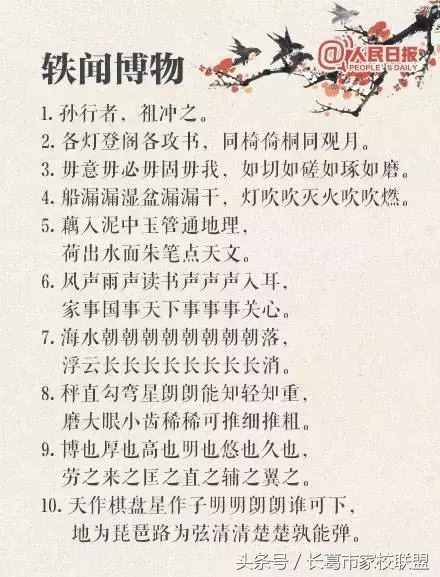 @人民日报
PEOPLE'S DAILY
轶闻博物
1. 孙行者，祖冲之。
2. 各灯登阁各攻书，同椅倚桐同观月。
3. 毋意毋必毋固毋我，如切如磋如琢如磨。
4. 船漏漏湿盆漏漏干，灯吹吹灭火吹吹燃。
5. 藕入泥中玉管通地理，
荷出水面朱笔点天文。
6. 风声雨声读书声声声入耳，
家事国事天下事事事关心。
7. 海水朝朝朝朝朝朝朝朝落，
浮云长长长长长长长长消。
8. 秤直勾弯星朗朗能知轻知重，
磨大眼小齿稀稀可推细推粗。
9. 博也厚也高也明也悠也久也，
劳之来之匡之直之辅之翼之。
10. 天作棋盘星作子明明朗朗谁可下，
地为琵琶路为弦清清楚楚孰能弹。
头条号／长葛市家校联盟